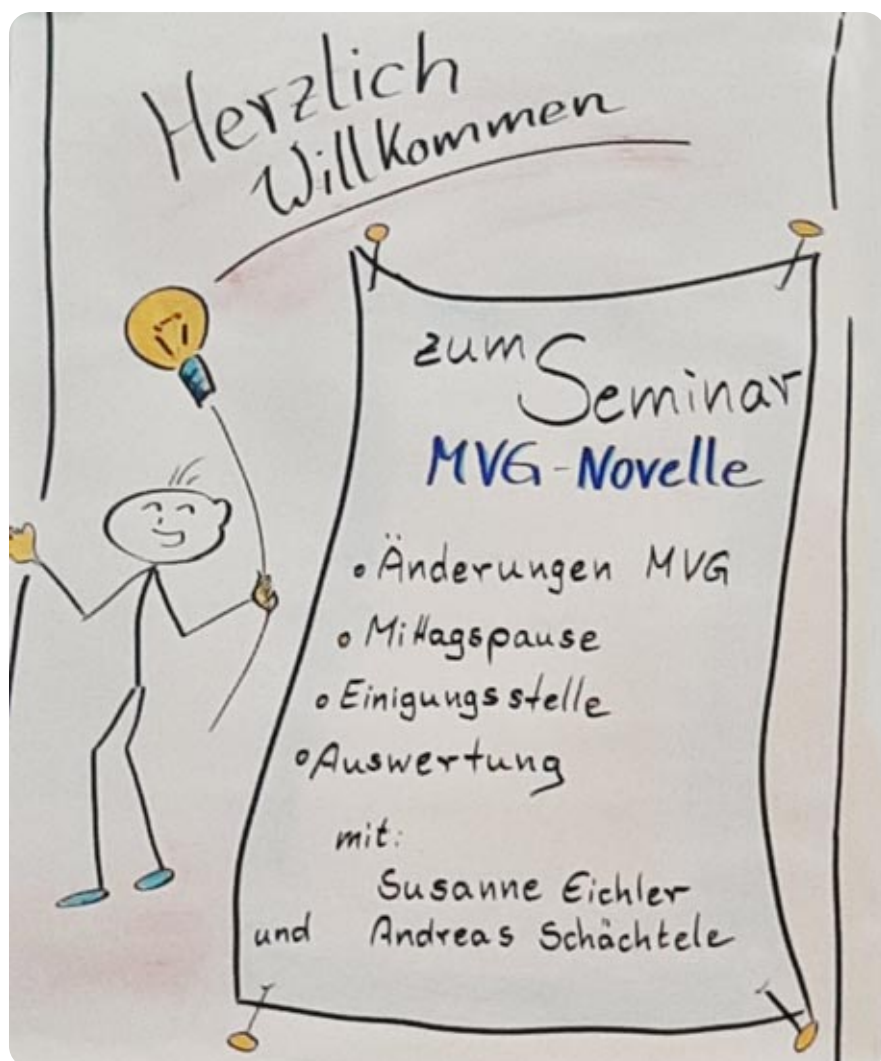 Herzlich
Willkommen
zum Seminar
MVG-Novelle
• Änderungen MVG
• Mittagspause
• Einigungsstelle
• Auswertung
mit:
Susanne Eichler
und Andreas Schächtele